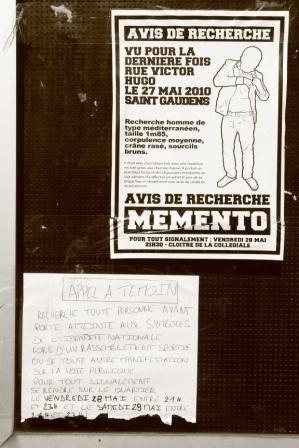 AVIS DE RECHERCHE
VU POUR LA
DERNIERE FOIS
RUE VICTOR
HUGO
LE 27 MAI 2010
SAINT GAUDENS
Recherche homme de
type méditerranéen,
taille 1m85,
corpulence moyenne,
crâne rasé, sourcils
bruns.
AVIS DE RECHERCHE
MEMENTO
POUR TOUT SIGNALEMENT : VENDREDI 28 MAI
21H30 - CLOITRE DE LA COLLEGIALE
APPEL A TEMOIN
RECHERCHE TOUTE PERSONNE AYANT
PORTE ATTEINTE AUX SYMBOLES
DE L'IDENTITE NATIONALE
LORS D'UN RASSEMBLEMENT SPORTIF
OU DE TOUTE AUTRE MANIFESTATION
SUR LA VOIE PUBLIQUE
POUR TOUT SIGNALEMENT
SE RENDRE SUR LE QUARTIER
LE VENDREDI 28 MAI ENTRE 21H
ET 23H ET LE SAMEDI 29 MAI ENTRE